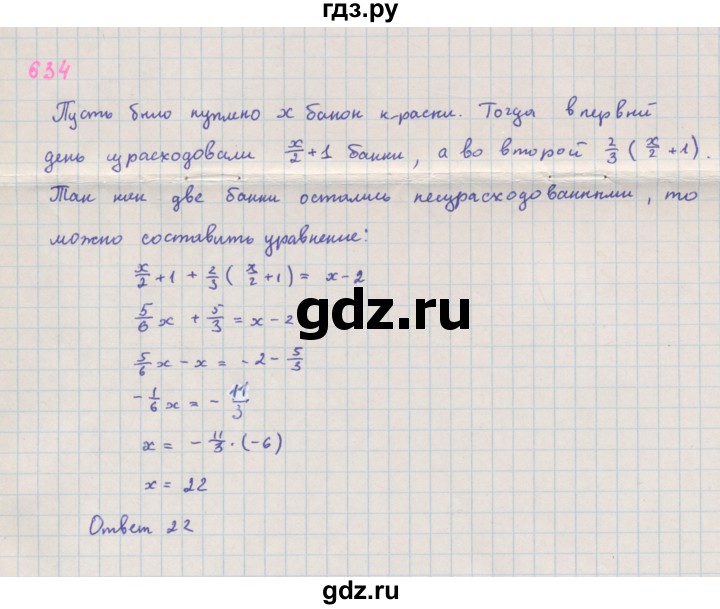 гдз.ру
634
Пусть было куплено x банок краски. Тогда в первый
день израсходовали x/2 + 1 банки, а во второй 2/3 ( x/2 + 1 ).
Так как две банки остались неизрасходованными, то
можно составить уравнение:
x/2 + 1 + 2/3 ( x/2 + 1 ) = x - 2
5/6 x + 5/3 = x - 2
gdz.ru
5/6 x - x = - 2 - 5/3
- 1/6 x = - 11/3
x = - 11/3 · (-6)
x = 22
Ответ 22
gdz.ru